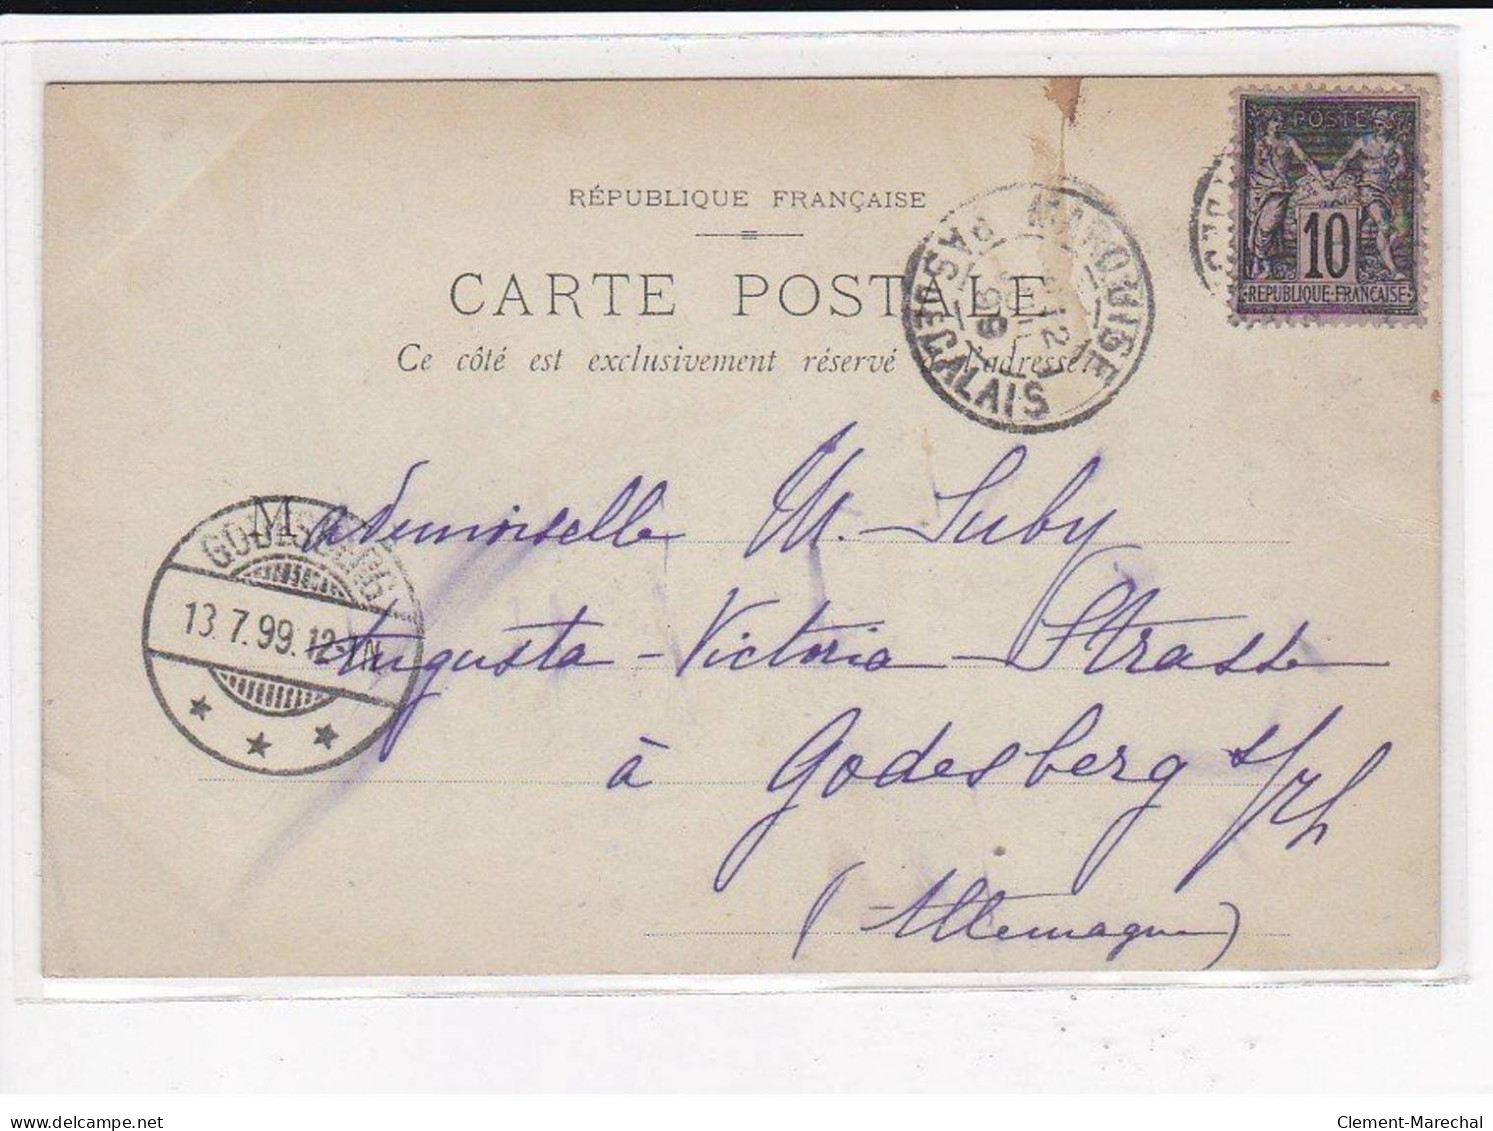 POSTE
10
RÉPUBLIQUE FRANÇAISE
RÉPUBLIQUE FRANÇAISE
CARTE POSTALE
Ce côté est exclusivement réservé à l'adresse
MARQUISE
PAS DE CALAIS
99
GODESBERG
13.7.99.12-1N
Mademoiselle M. Suby
Augusta-Victoria-Strasse
à Godesberg s/Rh
(Allemagne)
delcampe.net
Clement-Marechal